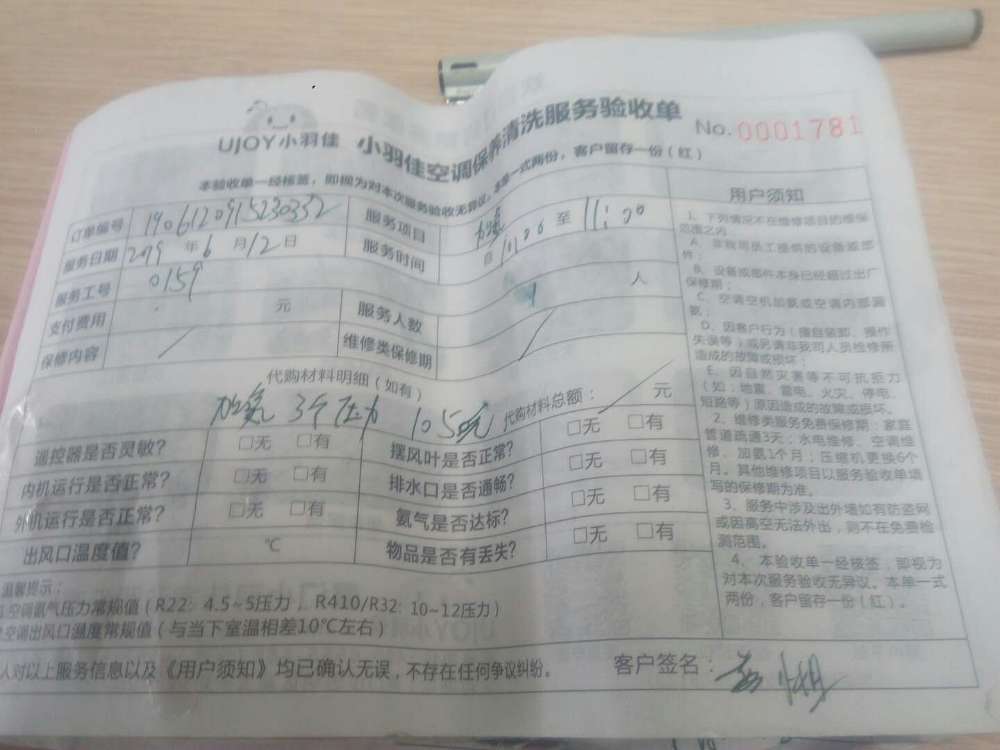 UJOY小羽佳 小羽佳空调保养清洗服务验收单 No.0001781
本验收单一经核签，即视为对本次服务验收无异议。本单一式两份，客户留存一份（红）
订单编号 1906120915230332 服务项目
服务日期 2019年6月12日 服务时间 自10:00至11:00
服务工号 0159
支付费用 元 服务人数 人
保修内容 / 维修类保修期 /
代购材料明细（如有）
加氨 3个压力 105元 代购材料总额： 元
遥控器是否灵敏？ □无 □有 摆风叶是否正常？ □无 □有
内机运行是否正常？ □无 □有 排水口是否通畅？ □无 □有
外机运行是否正常？ □无 □有 氨气是否达标？ □无 □有
出风口温度值？ ℃ 物品是否有丢失？ □无 □有
温馨提示：
空调氨气压力常规值（R22：4.5~5压力，R410/R32: 10~12压力）
空调出风口温度常规值（与当下室温相差10℃左右）
人对以上服务信息以及《用户须知》均已确认无误，不存在任何争议纠纷。
客户签名：
用户须知
1、下列情况不在维修项目的维保
范围之内
A、非我司员工提供的设备或部
件；
B、设备或部件本身已经超过出厂
保修期；
C、空调空机加氨或空调内部漏
氨；
D、因客户行为（擅自装卸、操作
失误等）或另请非我司人员维修所
造成的故障或损坏；
E、因自然灾害等不可抗拒力
（如：地震、雷电、火灾、停电、
短路等）原因造成的故障或损坏。
2、维修类服务免费保修期：家庭
管道疏通3天；水电维修、空调维
修、加氨1个月；压缩机更换6个
月。其他维修项目以服务验收单填
写的保修期为准。
3、服务中涉及出外墙如有防盗网
或因高空无法外出，则不在免费检
测范围。
4、本验收单一经核签，即视为
对本次服务验收无异议。本单一式
两份，客户留存一份（红）。